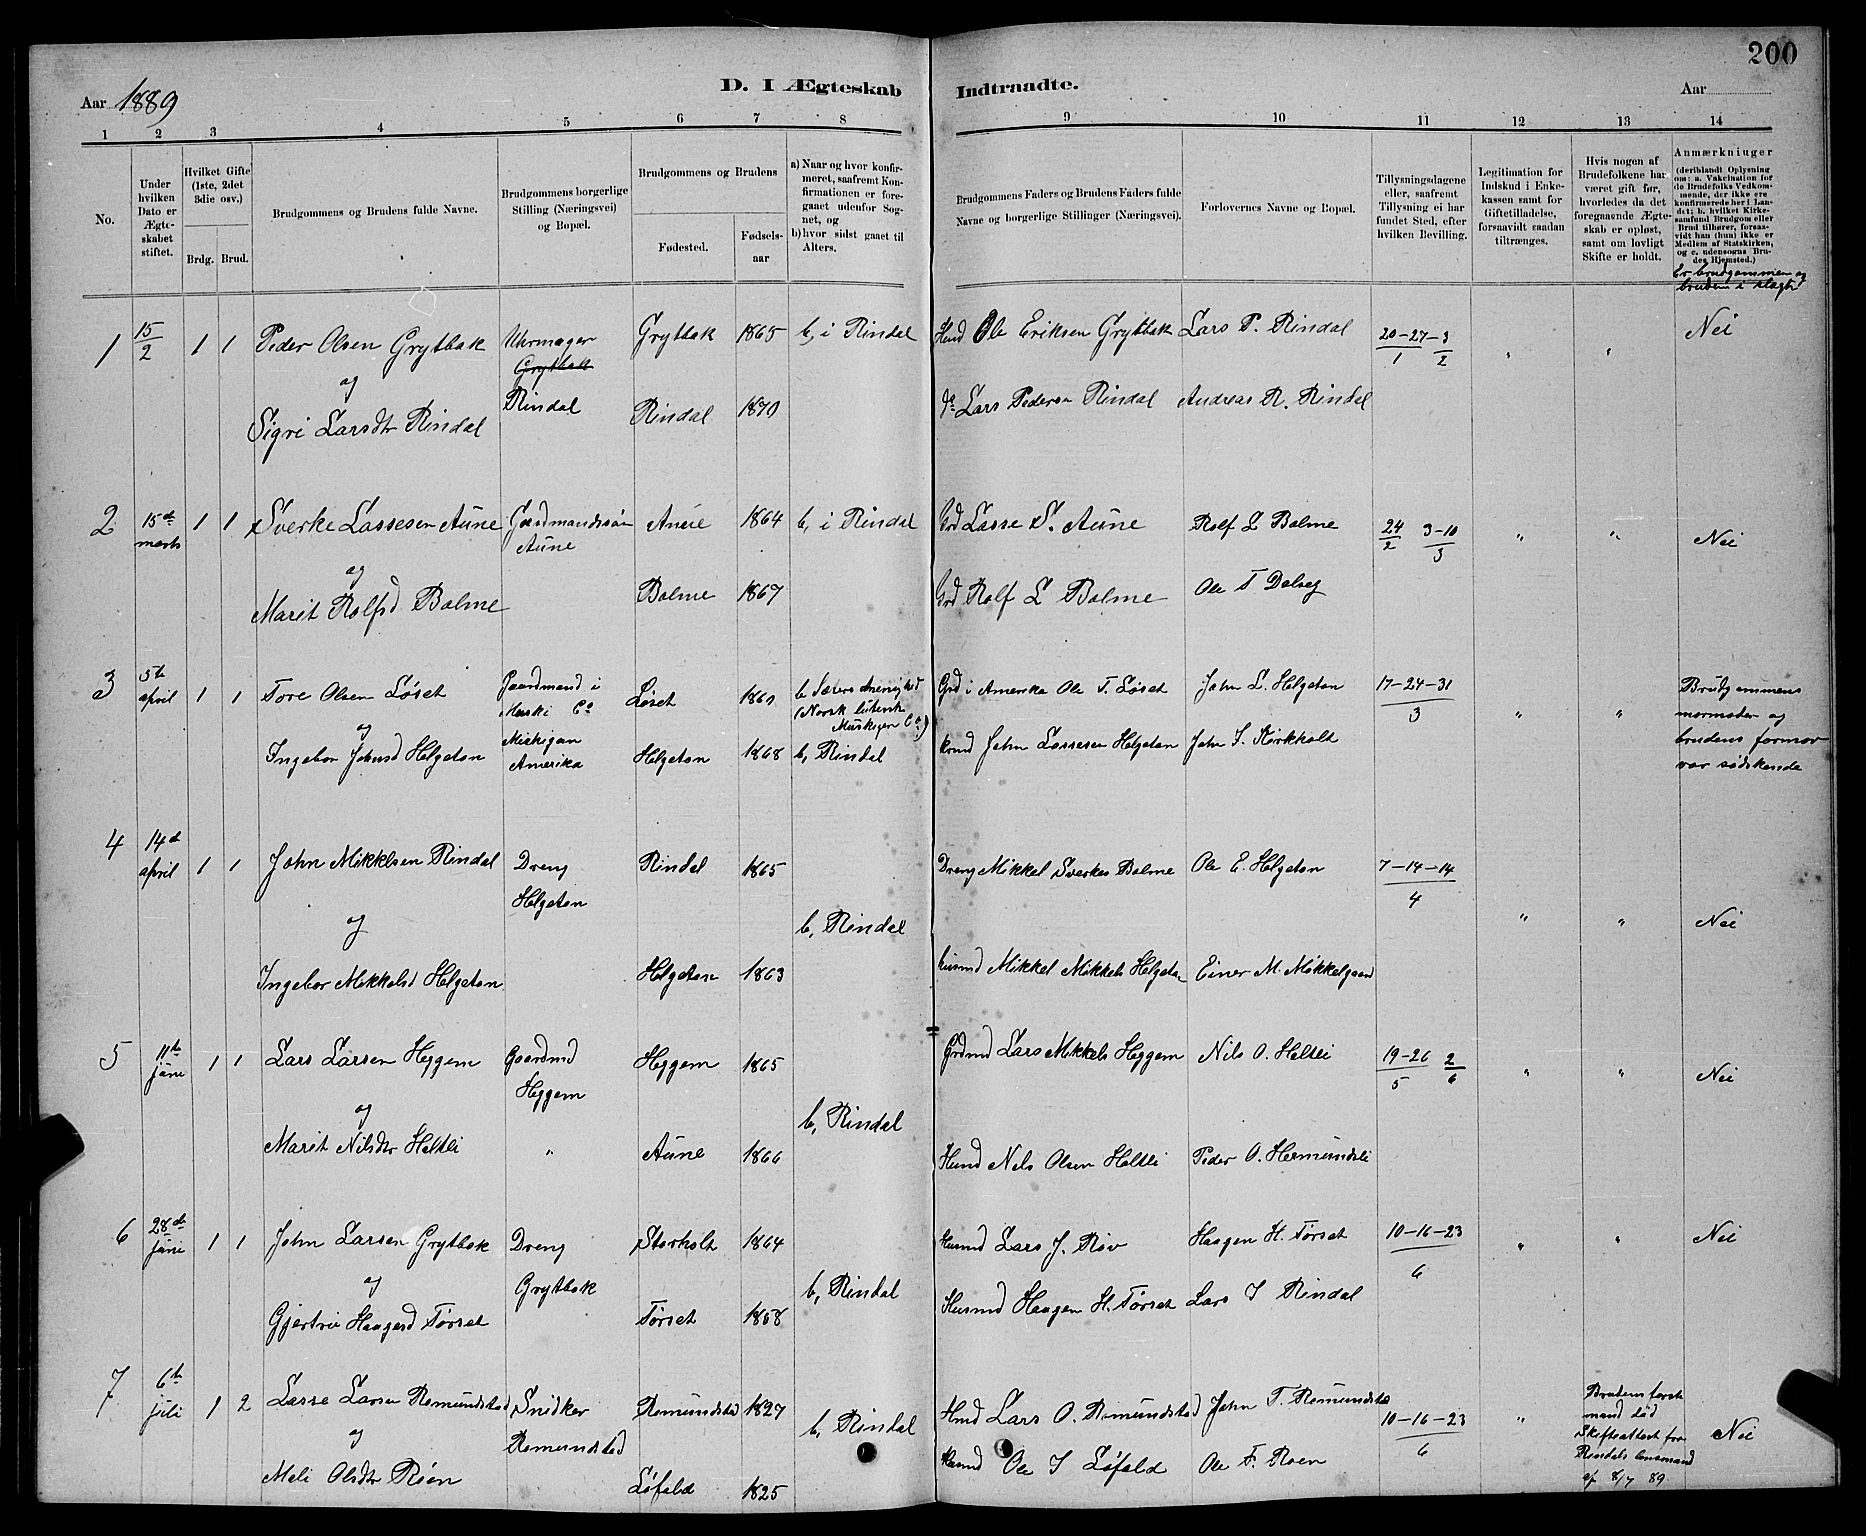 200
D. I Ægteskab Indtraadte.
Aar 1889
Aar
1 2 3 4 5 6 7 8 9 10 11 12 13 14
No.
Under hvilken Dato er Ægteskabet stiftet.
Hvilket Gifte (1ste, 2det 3die osv.)
Brdg. Brud.
Brudgommens og Brudens fulde Navne.
Brudgommens borgerlige Stilling (Næringsvei) og Bopæl.
Brudgommens og Brudens
Fødested.
Fødselsaar
a) Naar og hvor konfirmeret, saafremt Konfirmationen er foregaaet udenfor Sognet, og
b) hvor sidst gaaet til Alters.
Brudgommens Faders og Brudens Faders fulde Navne og borgerlige Stillinger (Næringsvei).
Forlovernes Navne og Bopæl.
Tillysningsdagene eller, saafremt Tillysning ei har fundet Sted, efter hvilken Bevilling.
Legitimation for Indskud i Enkekassen samt for Giftetilladelse, forsaavidt saadan tiltrænges.
Hvis nogen af Brudefolkene har været gift før, hvorledes da det foregaaende Ægteskab er opløst, samt om lovligt Skifte er holdt.
Anmærkninger
(deriblandt Oplysning om: a. Vakcination for de Brudefolks Vedkommende, der ikke ere konfirmerede her i Landet; b. hvilket Kirkesamfund Brudgom eller Brud tilhører, forsaavidt han (hun) ikke er Medlem af Statskirken, og c. udensogns Brudes Hjemsted.)
Er brudgommen og bruden i slægt
1 15/2 1 1 Peder Olsen Grytbak Uhrmager Grytbak 1865 b, i Rindal Husmd Ole Eriksen Grytbak Lars P. Rindal 20-27/1 - 3/2 " " Nei
og Grytbak
Rindal
Sigri Larsdtr Rindal Rindal 1870 do Lars Pedersen Rindal Andreas R. Rindal
2 15de marts 1 1 Sverke Lassesen Aune Gaardmandssøn Aune Aune 1864 b, i Rindal Grd Lasse S. Aune Rolf L Bolme 24/2 3-10/3 " " Nei
og
Marit Rolfsd Bolme Bolme 1867 Grd Rolf L Bolme Ole T Dalseg
3 5te april 1 1 Tore Olsen Løset Gaardmand i Løset b Grd i Amerika Ole T. Løset John L. Helgeton 17-24-31/3 " " Brudgommens mormoder og brudens formor var sødskende
og Michigan Amerika
Ingebor Johnsd Helgeton Helgeton 1868 b, Rindal John Lassesen Helgeton John S. Kirkholt
4 14de april 1 1 John Mikkelsen Rindal Dreng Helgeton Rindal 1865 Dreng Mikkel Sverkes Bolme Ole E. Helgeton 7-14-14/4 " " Nei
og b, Rindal
Ingebor Mikkelsd Helgeton Helgeton 1863 husmd Mikkel Mikkels Helgeton Einer M. Mikkelgaard
5 11te juni 1 1 Lars Larsen Heggem Gaardmd Heggem Heggem 1865 Grdmd Lars Mikkels Heggem Nils O. Heltli 19-26/5 2/6 " " Nei
og b, Rindal
Marit Nilsdtr Heltli " Aune 1866 Husmd Nils Olsen Heltli Peder O. Hermundsli
6 28de juni 1 1 John Larsen Grytbak Dreng Grytbak Storholt 1864 Husmd Lars J. Røv Haagen H. Tørset 10-16-23/6 " " Nei
og b, Rindal
Gjertru Haagensd Tørset Tørset 1868 Husmd Haagen H. Tørset Lars J Rindal
7 6te juli 1 2 Lasse Larsen Romundstad Snidker Romundstad Romundstad 1827 b, Rindal Husmd Lars O. Romundstad John T. Romundstad 10-16-23/6 " Brudens første mand død Skifteattest fra Rindals lensmand af 8/7 89 Nei
og
Meli Olsdtr Røen Løfald 1825 Husmd Ole J Løfald Ole F. Røen